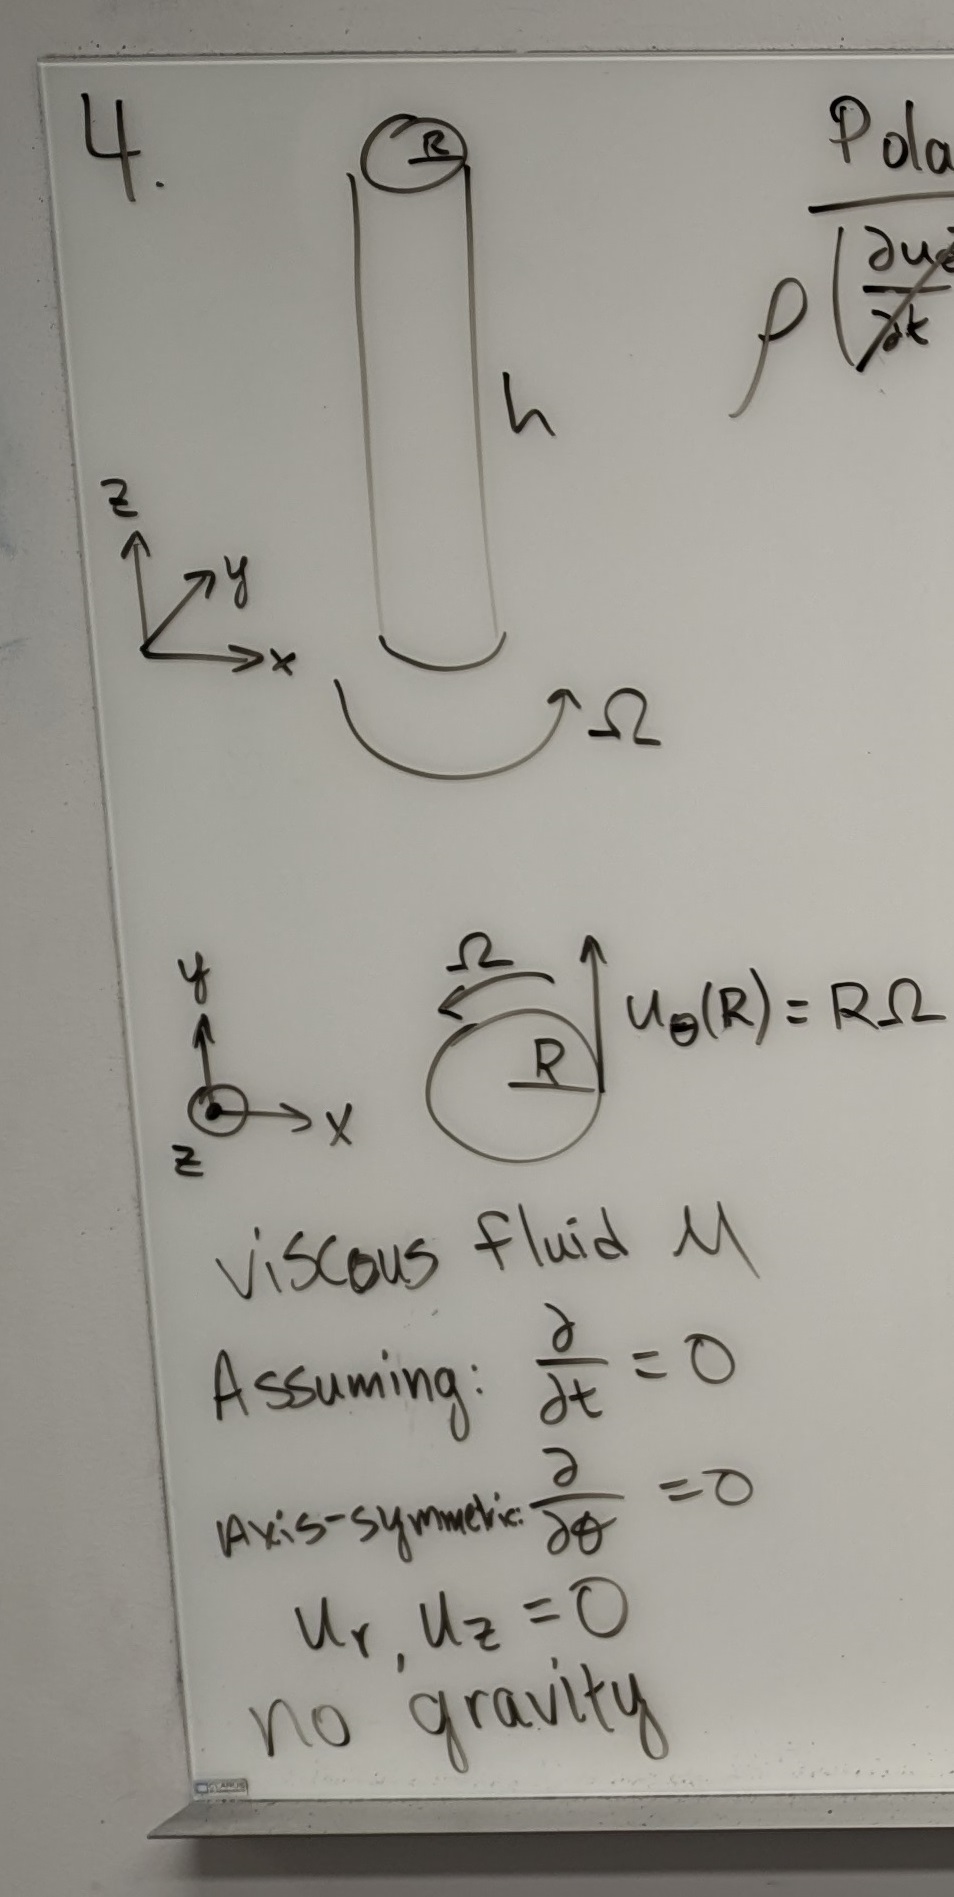 4.
R
h
z
y
x
Ω
Pola
ρ(∂u
∂t
y
x
z
Ω
R
u_θ(R) = RΩ
viscous fluid μ
Assuming: ∂/∂t = 0
Axis-symmetric: ∂/∂θ = 0
u_r, u_z = 0
no gravity